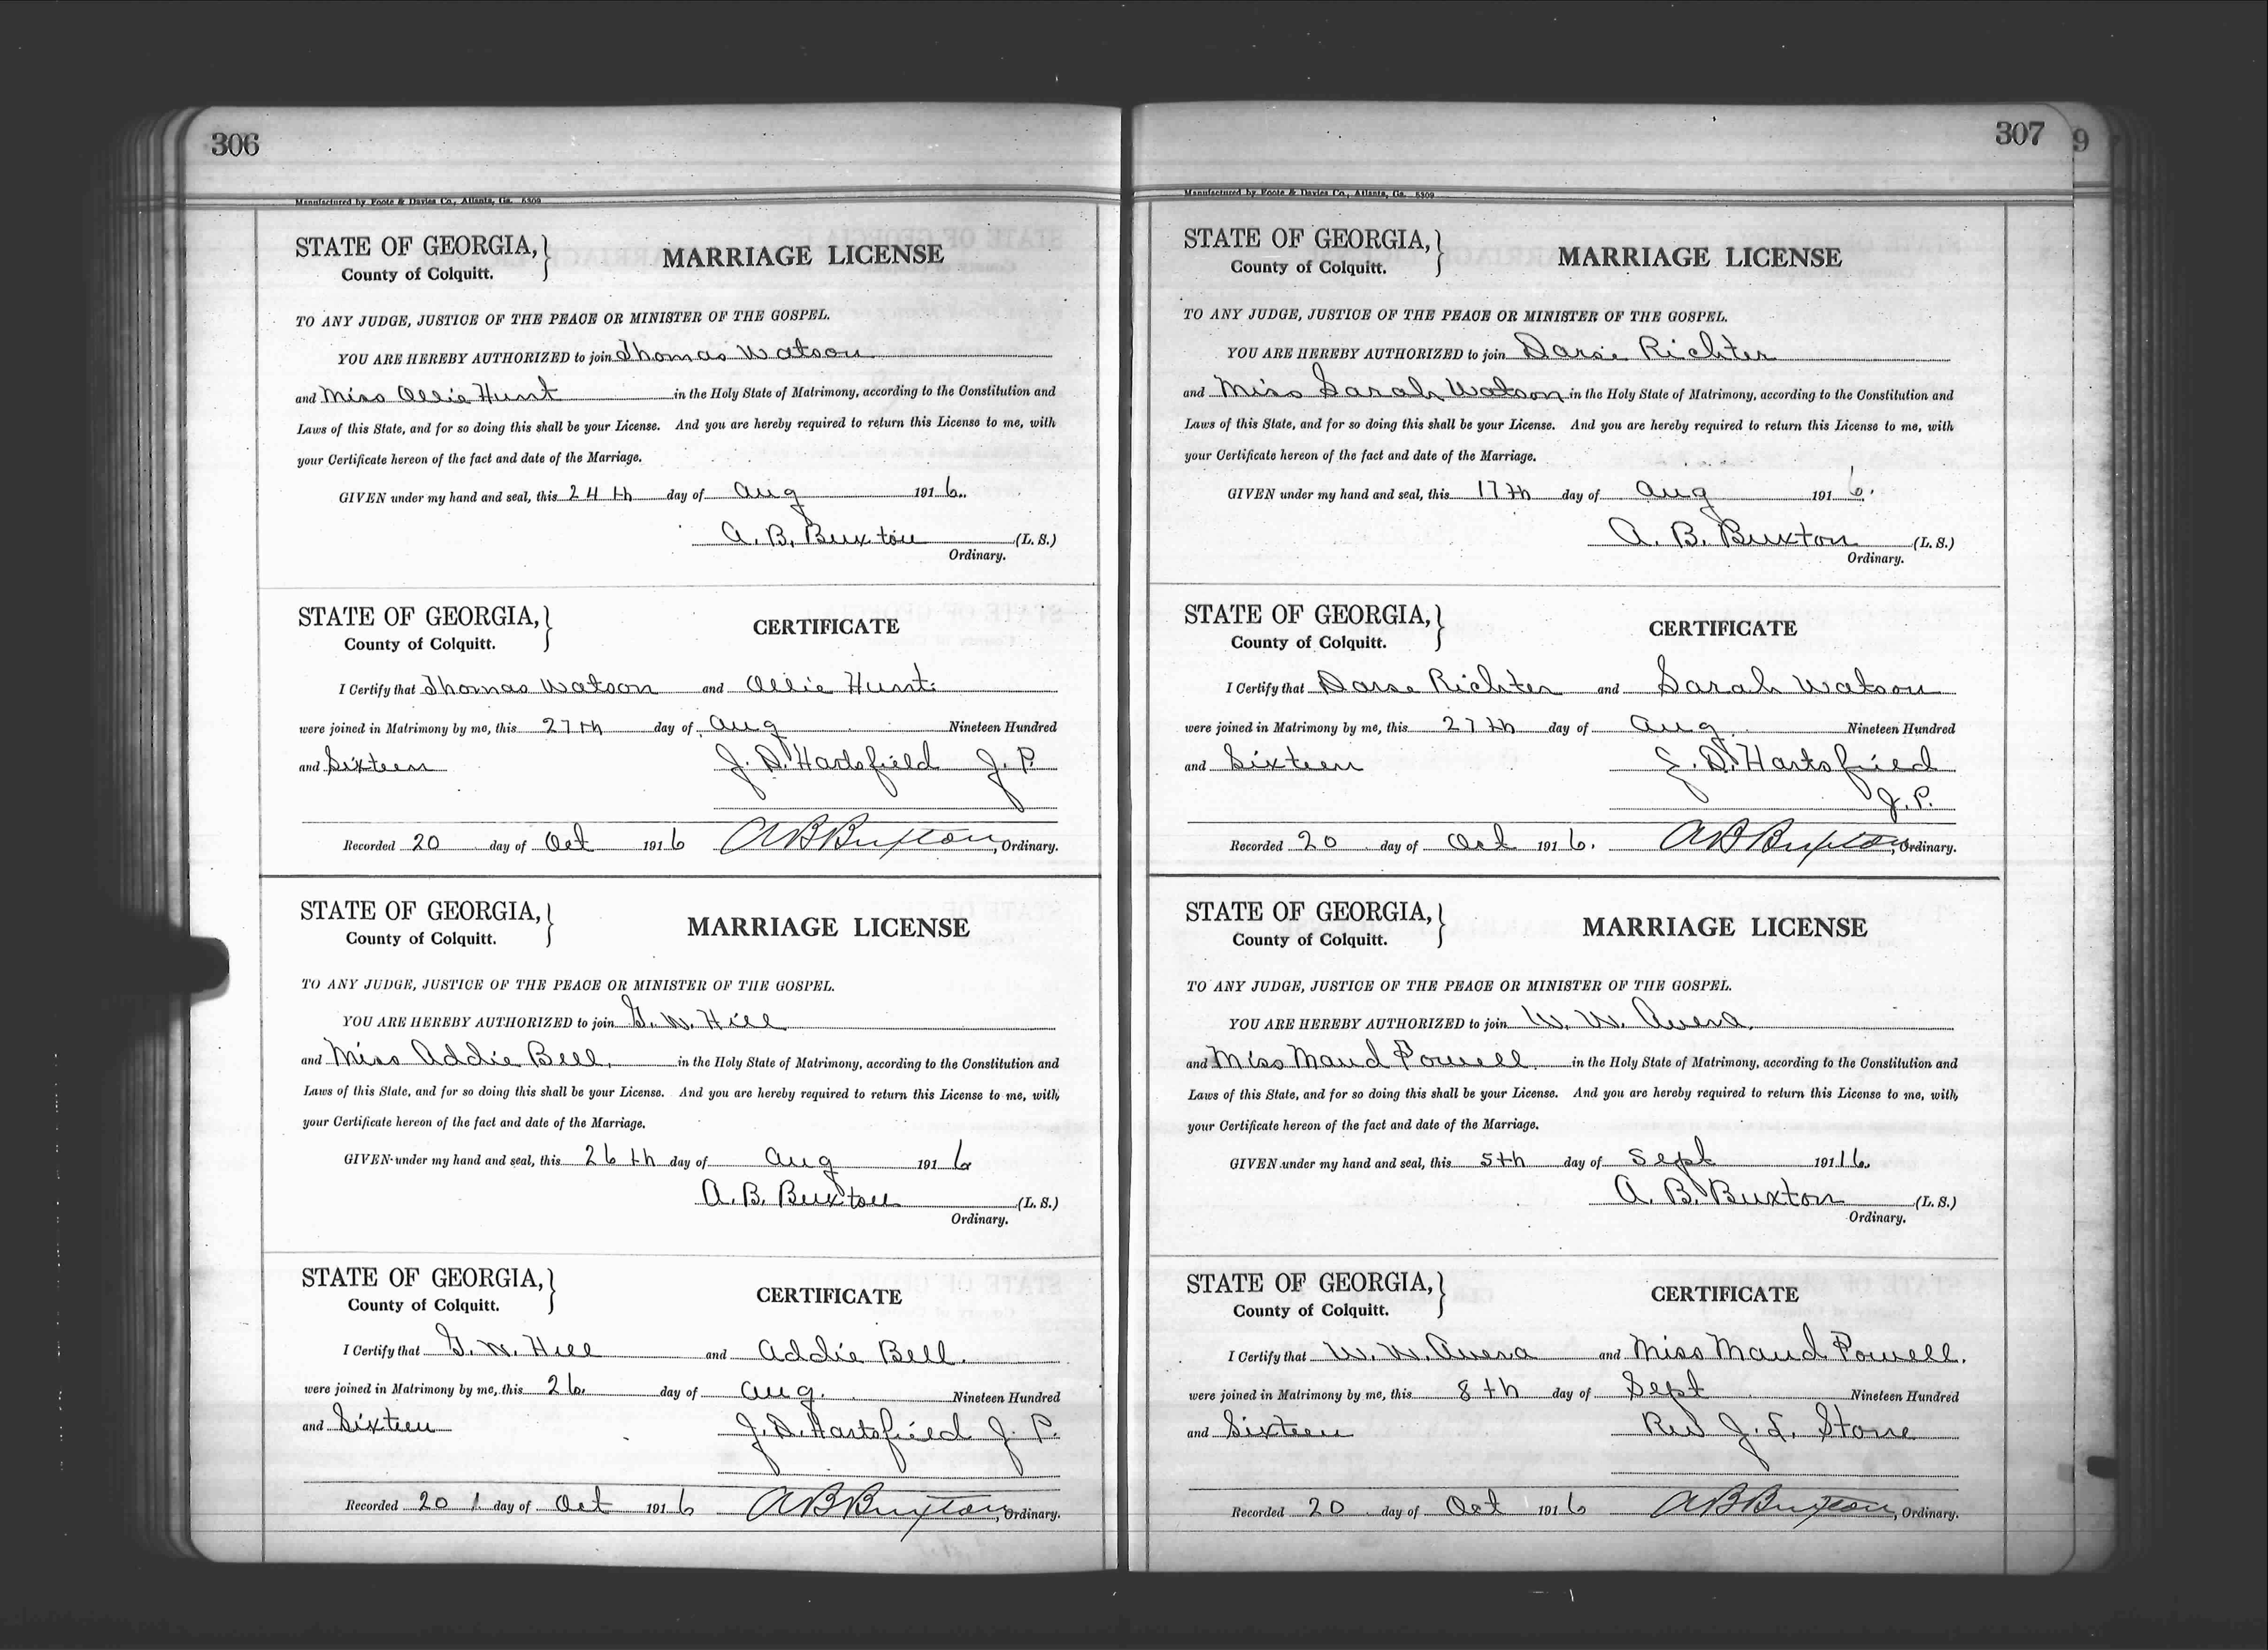 306
Manufactured by Foote & Davies Co., Atlanta, Ga. 5309
STATE OF GEORGIA,
County of Colquitt.
MARRIAGE LICENSE
TO ANY JUDGE, JUSTICE OF THE PEACE OR MINISTER OF THE GOSPEL.
YOU ARE HEREBY AUTHORIZED to join Thomas Watson
and Miss Ollie Hunt in the Holy State of Matrimony, according to the Constitution and
Laws of this State, and for so doing this shall be your License. And you are hereby required to return this License to me, with
your Certificate hereon of the fact and date of the Marriage.
GIVEN under my hand and seal, this 24th day of Aug 1916.
A. B. Buxton (L. S.)
Ordinary.
STATE OF GEORGIA,
County of Colquitt.
CERTIFICATE
I Certify that Thomas Watson and Ollie Hunt
were joined in Matrimony by me, this 27th day of Aug Nineteen Hundred
and Sixteen J. D. Hartsfield J. P.
Recorded 20 day of Oct 1916 A B Buxton, Ordinary.
STATE OF GEORGIA,
County of Colquitt.
MARRIAGE LICENSE
TO ANY JUDGE, JUSTICE OF THE PEACE OR MINISTER OF THE GOSPEL.
YOU ARE HEREBY AUTHORIZED to join G. W. Hill
and Miss Addie Bell. in the Holy State of Matrimony, according to the Constitution and
Laws of this State, and for so doing this shall be your License. And you are hereby required to return this License to me, with
your Certificate hereon of the fact and date of the Marriage.
GIVEN under my hand and seal, this 26th day of Aug 1916
A. B. Buxton (L. S.)
Ordinary.
STATE OF GEORGIA,
County of Colquitt.
CERTIFICATE
I Certify that G. W. Hill and Addie Bell.
were joined in Matrimony by me, this 26. day of Aug. Nineteen Hundred
and Sixteen J. D. Hartsfield J. P.
Recorded 20 day of Oct 1916 A B Buxton, Ordinary.
307
9
Manufactured by Foote & Davies Co., Atlanta, Ga. 5309
STATE OF GEORGIA,
County of Colquitt.
MARRIAGE LICENSE
TO ANY JUDGE, JUSTICE OF THE PEACE OR MINISTER OF THE GOSPEL.
YOU ARE HEREBY AUTHORIZED to join Darsie Richter
and Miss Sarah Watson in the Holy State of Matrimony, according to the Constitution and
Laws of this State, and for so doing this shall be your License. And you are hereby required to return this License to me, with
your Certificate hereon of the fact and date of the Marriage.
GIVEN under my hand and seal, this 17th day of Aug 1916.
A. B. Buxton (L. S.)
Ordinary.
STATE OF GEORGIA,
County of Colquitt.
CERTIFICATE
I Certify that Darse Richter and Sarah Watson
were joined in Matrimony by me, this 27th day of Aug Nineteen Hundred
and Sixteen J. D. Hartsfield
J. P.
Recorded 20 day of Oct 1916. A B Buxton, Ordinary.
STATE OF GEORGIA,
County of Colquitt.
MARRIAGE LICENSE
TO ANY JUDGE, JUSTICE OF THE PEACE OR MINISTER OF THE GOSPEL.
YOU ARE HEREBY AUTHORIZED to join W. W. Avera.
and Miss Maud Powell. in the Holy State of Matrimony, according to the Constitution and
Laws of this State, and for so doing this shall be your License. And you are hereby required to return this License to me, with
your Certificate hereon of the fact and date of the Marriage.
GIVEN under my hand and seal, this 5th day of Sept 19116.
A. B. Buxton (L. S.)
Ordinary.
STATE OF GEORGIA,
County of Colquitt.
CERTIFICATE
I Certify that W. W. Avera and Miss Maud Powell.
were joined in Matrimony by me, this 8th day of Sept Nineteen Hundred
and Sixteen Rev J. L. Stone
Recorded 20 day of Oct 1916 A B Buxton, Ordinary.